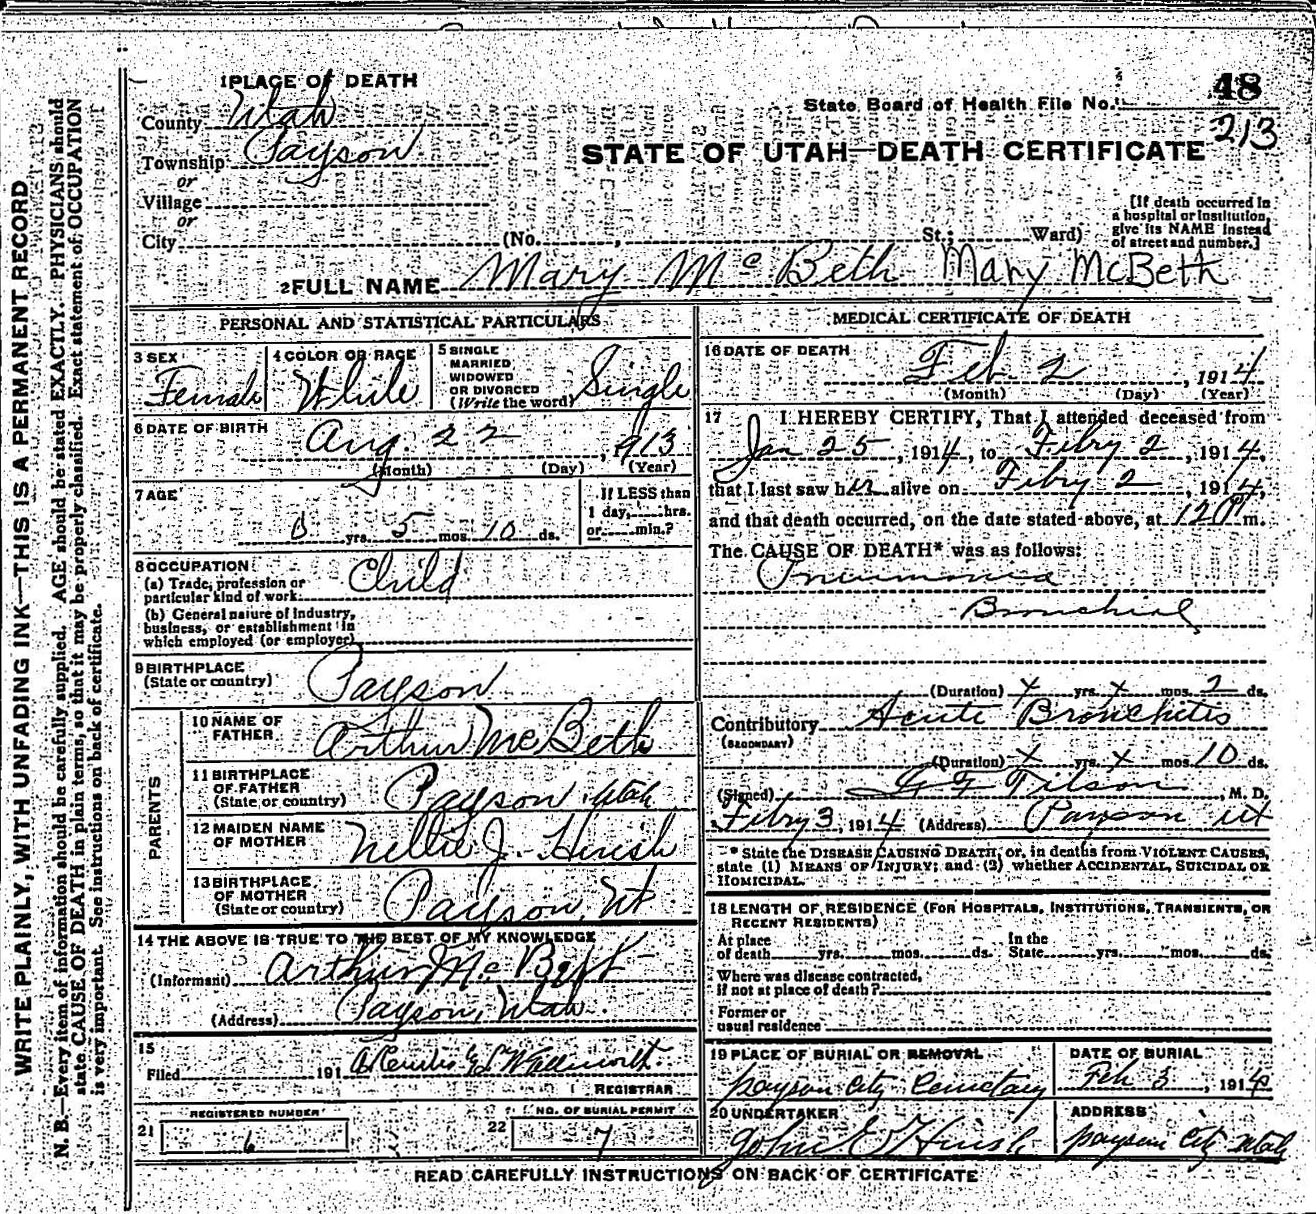 WRITE PLAINLY, WITH UNFADING INK—THIS IS A PERMANENT RECORD
N. B.—Every item of information should be carefully supplied. AGE should be stated EXACTLY. PHYSICIANS should
state CAUSE OF DEATH in plain terms, so that it may be properly classified. Exact statement of OCCUPATION
is very important. See instructions on back of certificate.
1 PLACE OF DEATH
County Utah
Township Payson
or
Village
or
City (No. , St.; Ward)
State Board of Health File No. 48
213
STATE OF UTAH—DEATH CERTIFICATE
[If death occurred in
a hospital or institution,
give its NAME instead
of street and number.]
2 FULL NAME Mary McBeth Mary McBeth
PERSONAL AND STATISTICAL PARTICULARS
3 SEX Female
4 COLOR OR RACE White
5 SINGLE
MARRIED
WIDOWED
OR DIVORCED
(Write the word) Single
6 DATE OF BIRTH Aug. 22, 1913
(Month) (Day) (Year)
7 AGE
0 yrs. 5 mos. 10 ds.
If LESS than
1 day, hrs.
or min.?
8 OCCUPATION
(a) Trade, profession or
particular kind of work Child
(b) General nature of industry,
business, or establishment in
which employed (or employer)
9 BIRTHPLACE
(State or country) Payson
PARENTS
10 NAME OF
FATHER Arthur McBeth
11 BIRTHPLACE
OF FATHER
(State or country) Payson Utah
12 MAIDEN NAME
OF MOTHER Nellie J. Hirish
13 BIRTHPLACE
OF MOTHER
(State or country) Payson, Ut
14 THE ABOVE IS TRUE TO THE BEST OF MY KNOWLEDGE
(Informant) Arthur McBeth
(Address) Payson, Utah.
15
Filed 191
REGISTRAR
21 REGISTERED NUMBER 6
22 NO. OF BURIAL PERMIT 7
MEDICAL CERTIFICATE OF DEATH
16 DATE OF DEATH
Feb 2, 1914
(Month) (Day) (Year)
17 I HEREBY CERTIFY, That I attended deceased from
Jan 25, 1914, to Febry 2, 1914,
that I last saw her alive on Febry 2, 1914,
and that death occurred, on the date stated above, at m.
The CAUSE OF DEATH* was as follows:
Pneumonia
Bronchial
(Duration) x yrs. x mos. 2 ds.
Contributory Acute Bronchitis
(SECONDARY)
(Duration) x yrs. x mos. 10 ds.
(Signed) Tilson, M. D.
Febry 3, 1914 (Address) Payson Ut
* State the DISEASE CAUSING DEATH, or, in deaths from VIOLENT CAUSES,
state (1) MEANS OF INJURY; and (2) whether ACCIDENTAL, SUICIDAL OR
HOMICIDAL.
18 LENGTH OF RESIDENCE (FOR HOSPITALS, INSTITUTIONS, TRANSIENTS, OR
RECENT RESIDENTS)
At place
of death yrs. mos. ds.
In the
State yrs. mos. ds.
Where was disease contracted,
if not at place of death?
Former or
usual residence
19 PLACE OF BURIAL OR REMOVAL
Payson City Cemetary
DATE OF BURIAL
Feb 3, 1914
20 UNDERTAKER
John E Hirish
ADDRESS
Payson City Utah
READ CAREFULLY INSTRUCTIONS ON BACK OF CERTIFICATE